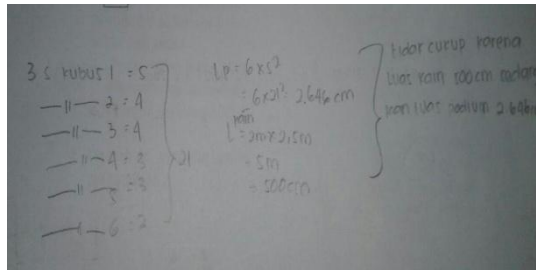 3 s kubus 1 = 5
—〃— 2 = 4
—〃— 3 = 4
—〃— 4 = 3
—〃— 5 = 3
—〃— 6 = 2
21
Lp = 6 x s²
= 6 x 21² = 2.646 cm
L kain = 2m x 2,5m
= 5m
= 500cm
tidak cukup karena
luas kain 500cm sedang
kan luas podium 2.646